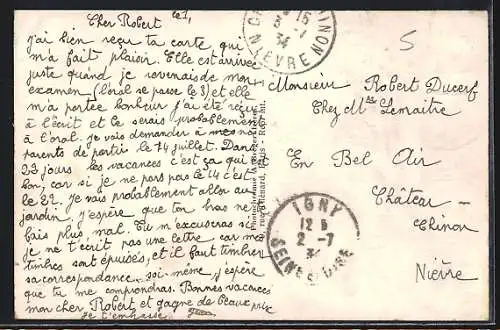 le 1,
Cher Robert
j'ai bien reçu ta carte qui
m'a fait plaisir. Elle est arrivée
juste quand je revenais de mon
examen (l'oral se passe le 3) et elle
m'a portée bonheur j'ai été reçue
à l'écrit et le serais probablement
à l'oral. je vais demander à mes
parents de partir le 14 juillet. Dans
23 jours les vacances c'est ça qui est
bon, car si je ne pars pas le 14 c'est
le 22. Je vais probablement aller au
jardin j'espère que ton bras ne
fais plus mal. Tu m'excuseras si
je ne t'écrit pas une lettre car mes
timbres sont épuisés, et il faut timbrer
sa correspondance soi-même j'espère
que tu me comprendras. Bonnes vacances
mon cher Robert et gagne de beaux prix
je t'embrasse
15
34
NIEVRE
CHINON
5
Monsieur Robert Ducerf
Chez Mme Lemaitre
En Bel Air
Château-
Chinon
Nièvre
IGNY
12
2-7
3
SEINE